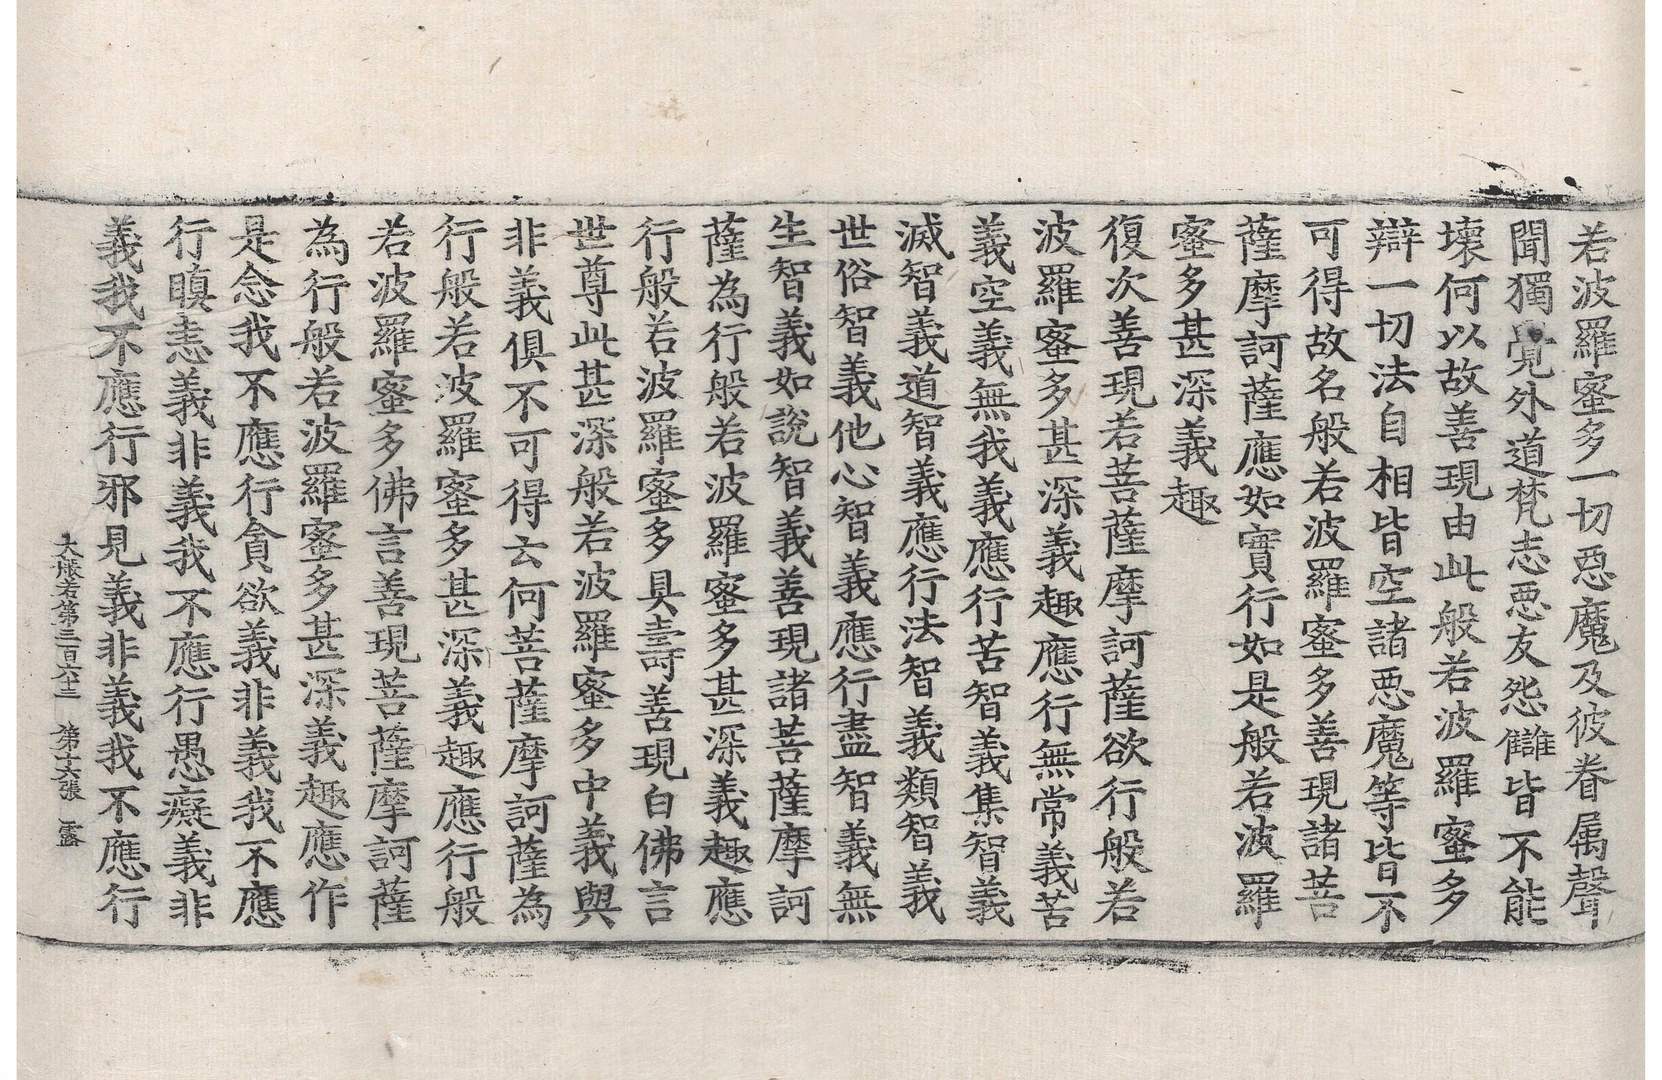 若波羅蜜多一切惡魔及彼眷属聲
聞獨覺外道梵志惡友怨讎皆不能
壞何以故善現由此般若波羅蜜多
辯一切法自相皆空諸惡魔等皆不
可得故名般若波羅蜜多善現諸菩
薩摩訶薩應如實行如是般若波羅
蜜多甚深義趣
復次善現若菩薩摩訶薩欲行般若
波羅蜜多甚深義趣應行無常義苦
義空義無我義應行苦智義集智義
滅智義道智義應行法智義類智義
世俗智義他心智義應行盡智義無
生智義如說智義善現諸菩薩摩訶
薩為行般若波羅蜜多甚深義趣應
行般若波羅蜜多具壽善現白佛言
世尊此甚深般若波羅蜜多中義與
非義俱不可得云何菩薩摩訶薩為
行般若波羅蜜多甚深義趣應行般
若波羅蜜多佛言善現菩薩摩訶薩
為行般若波羅蜜多甚深義趣應作
是念我不應行貪欲義非義我不應
行瞋恚義非義我不應行愚癡義非
義我不應行邪見義非義我不應行
大般若第三百六十三　第十六張　露